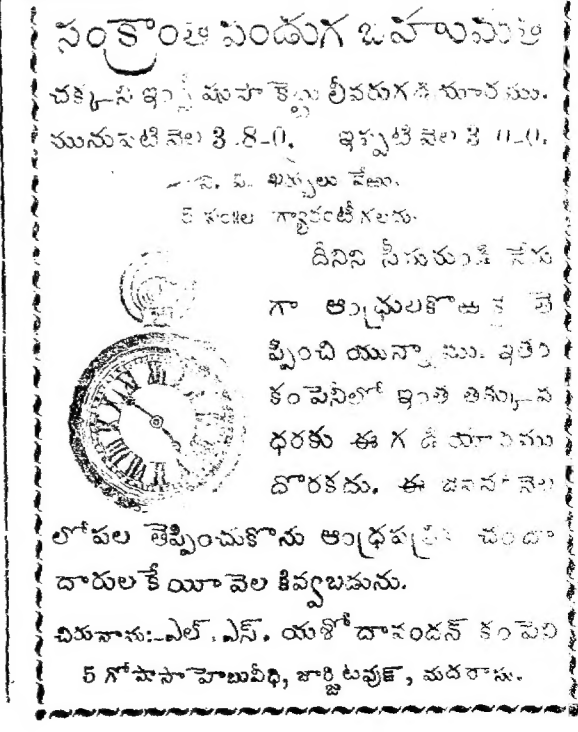 సంక్రాంతి పండుగ బహుమతి
చక్కని ఇంగ్లీషు పాకెట్టు లీవరు గడియారము.
మునుపటి వెల 3-8-0. ఇప్పటి వెల 3-0-0.
వి. పి. ఖర్చులు వేఱు.
5 సంలు గ్యారంటీ గలదు.
దీనిని సీమనుండి నేరు
గా ఆంధ్రులకొఱకై తె
ప్పించి యున్నాము. ఇతర
కంపెనీలో ఇంత తక్కువ
ధరకు ఈ గడియారము
దొరకదు. ఈ జనవరి నెల
లోపల తెప్పించుకొను ఆంధ్రపత్రిక చందా
దారులకే యీ వెల కివ్వబడును.
చిరునామ:-ఎల్. ఎస్. యశోదానందన్ కంపెని
5 గోపాసాహెబువీధి, జార్జిటవున్, మదరాసు.